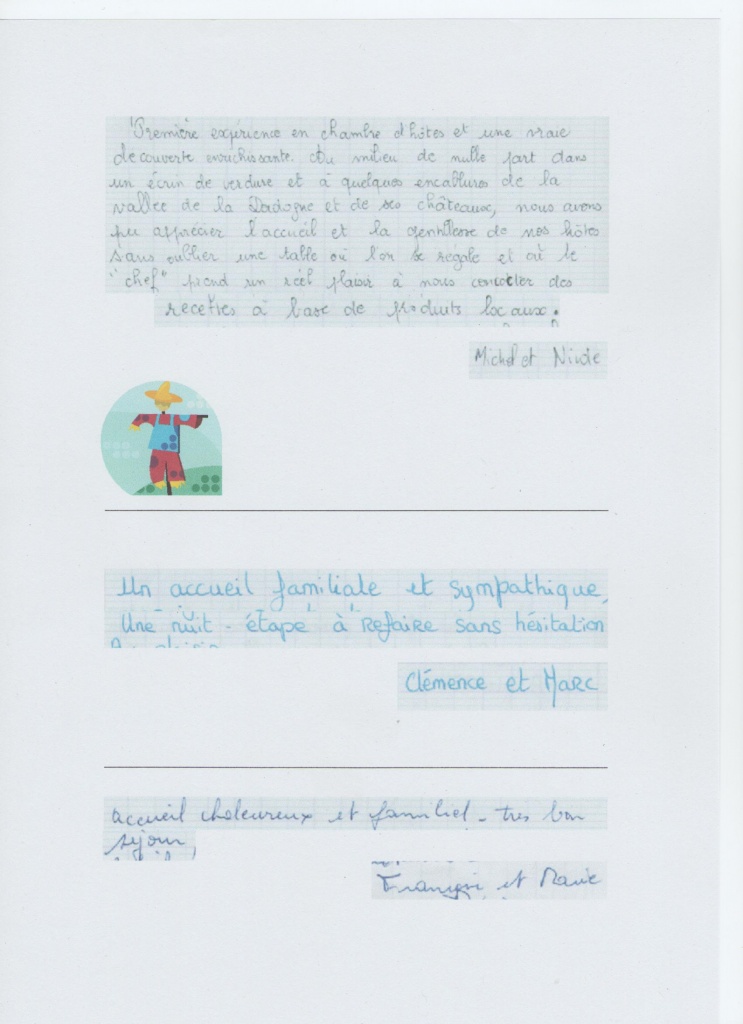 "Première expérience en chambre d'hôtes et une vraie
découverte enrichissante. Au milieu de nulle part dans
un écrin de verdure et à quelques encablures de la
vallée de la Dordogne et de ses châteaux, nous avons
pu apprécier l'accueil et la gentillesse de nos hôtes
sans oublier une table où l'on se régale et où le
"chef" prend un réel plaisir à nous concocter des
recettes à base de produits locaux.
Michel et
Un accueil familiale et sympathique,
Une nuit - étape à refaire sans hésitation
Clémence et Marc
accueil chaleureux et familial - très bon
séjour,
et Marie